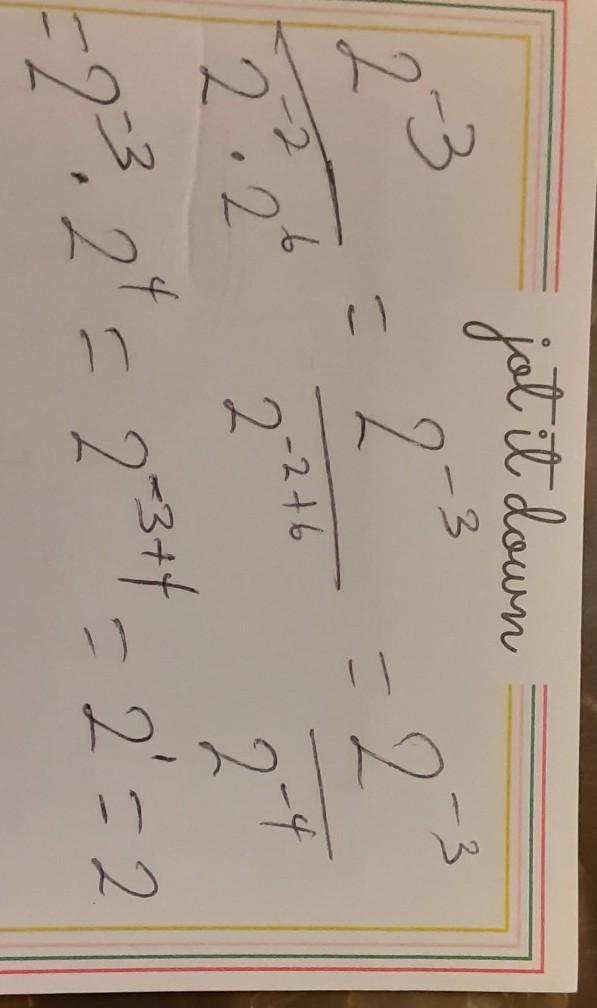 jot it down
2^-3 / (2^-2 · 2^6) = 2^-3 / 2^(-2+6) = 2^-3 / 2^-4
= 2^-3 · 2^4 = 2^(-3+4) = 2^1 = 2